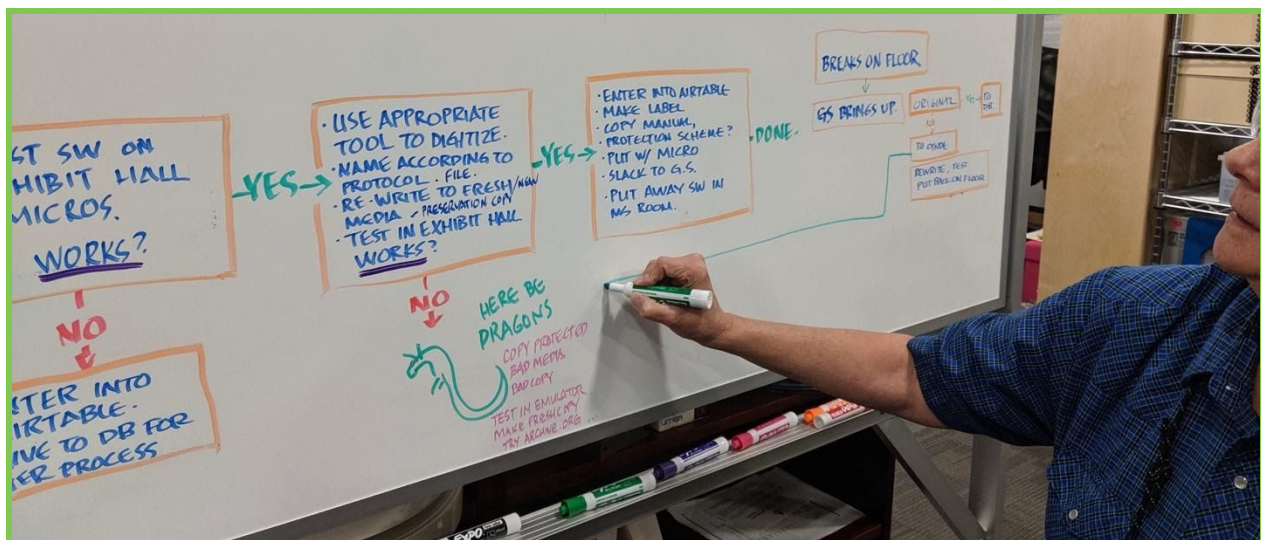 ST SW ON
HIBIT HALL
MICROS.
WORKS?
YES
NO
TER INTO
IRTABLE.
IVE TO DB FOR
ER PROCESS
• USE APPROPRIATE
TOOL TO DIGITIZE.
• NAME ACCORDING TO
PROTOCOL. FILE.
• RE-WRITE TO FRESH/NEW
MEDIA - PRESERVATION COPY
• TEST IN EXHIBIT HALL
WORKS?
YES
NO
HERE BE
DRAGONS
COPY PROTECTED
BAD MEDIA
BAD COPY
TEST IN EMULATOR
MAKE FRESH COPY
TRY ARCHIVE.ORG ...
• ENTER INTO AIRTABLE
• MAKE LABEL
• COPY MANUAL,
PROTECTION SCHEME?
• PUT W/ MICRO
• SLACK TO G.S.
• PUT AWAY SW IN
DONE.
BREAKS ON FLOOR
GS BRINGS UP.
ORIGINAL
YES
TO
NO
TO CYNDE
REWRITE, TEST
PUT BACK ON FLOOR
EXPO